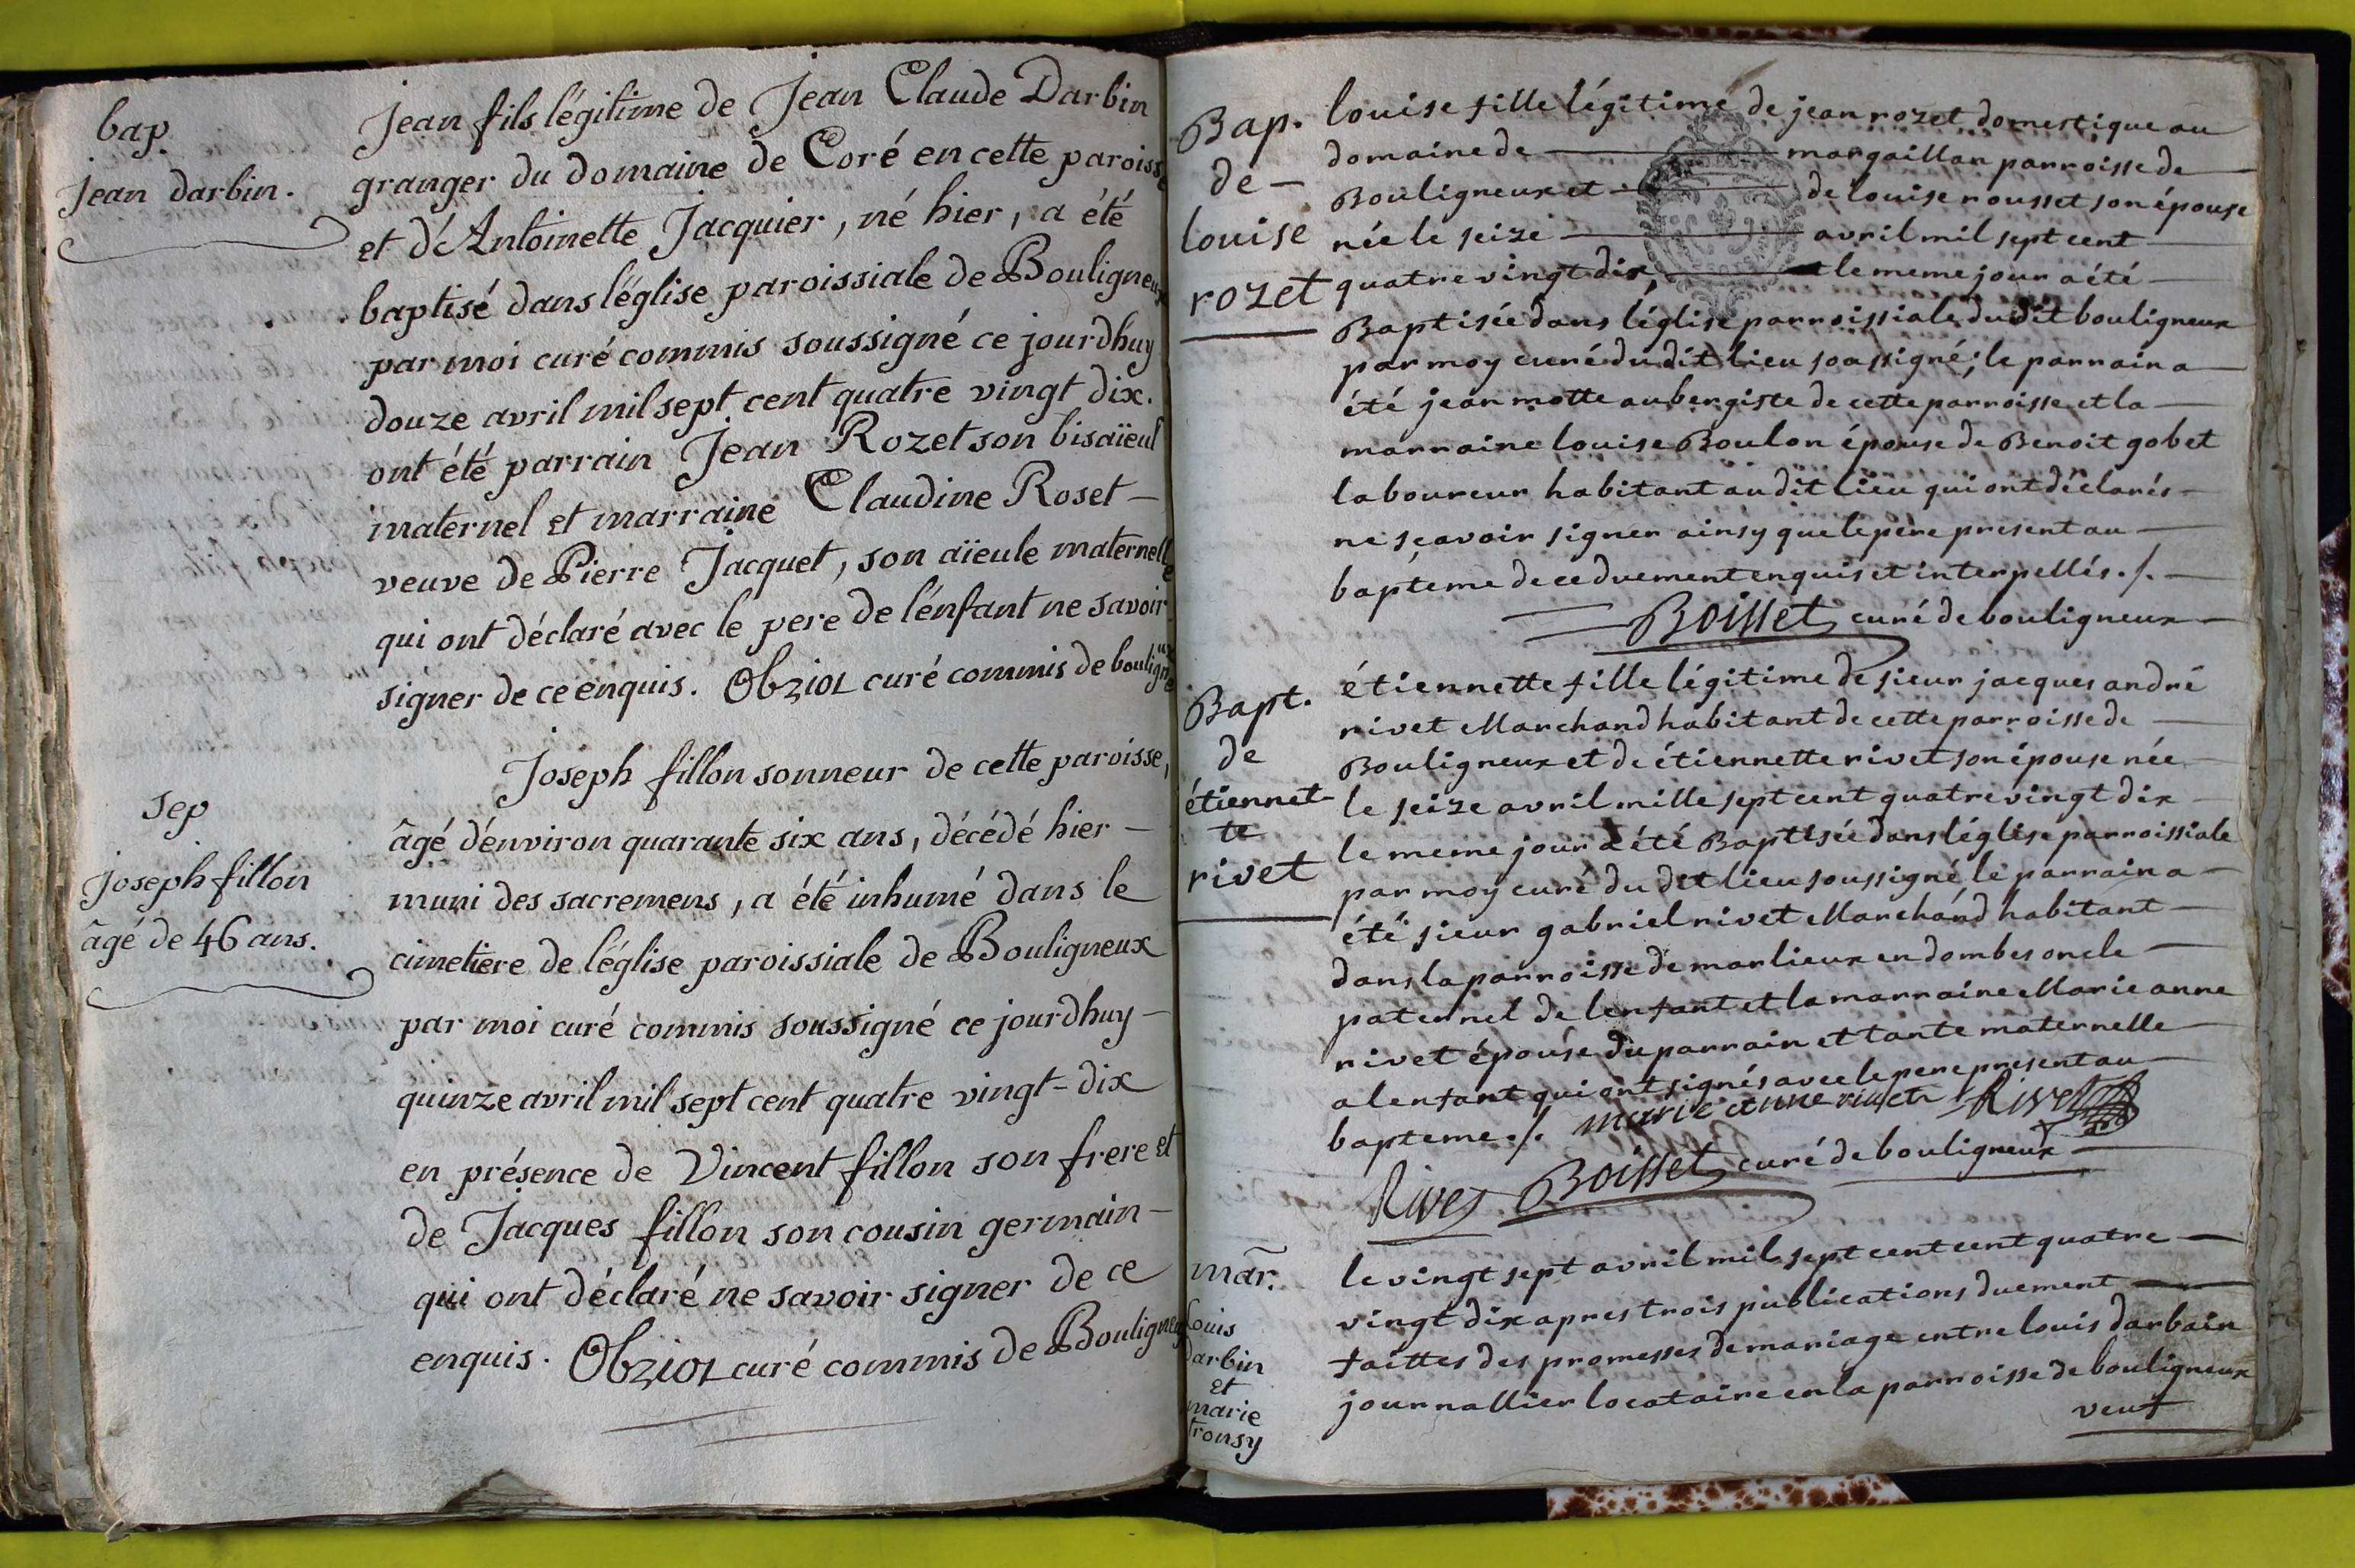 bap.
jean darbin.
Jean fils légitime de Jean Claude Darbin
granger du domaine de Coré en cette paroisse
et d'Antoinette Jacquier, né hier, a été
baptisé dans l'église paroissiale de Bouligneux
par moi curé commis soussigné ce jourdhuy
douze avril mil sept cent quatre vingt dix.
ont été parrain Jean Rozet son bisaïeul
maternel et marraine Claudine Roset -
veuve de Pierre Jacquet, son aïeule maternelle
qui ont déclaré avec le pere de l'énfant ne savoir
signer de ce enquis. curé commis de bouligneux
sep
joseph fillon
âgé de 46 ans.
Joseph fillon sonneur de cette paroisse,
âgé d'environ quarante six ans, décédé hier -
muni des sacremens, a été inhumé dans le
cimetiere de l'église paroissiale de Bouligneux
par moi curé commis soussigné ce jourdhuy -
quinze avril mil sept cent quatre vingt-dix
en présence de Vincent fillon son frere et
de Jacques fillon son cousin germain -
qui ont déclaré ne savoir signer de ce
enquis. curé commis de Bouligneux
Bap.
de -
louise
rozet
louise fille légitime de jean rozet domestique au
domaine de margaillan parroisse de
Bouligneux et de louise rousset son épouse
née le seize avril mil sept cent
quatre vingt dix, le meme jour a été
Baptisée dans l'église parroissiale du dit bouligneux
par moy curé du dit lieu soassigné; le parrain a
été jean motte aubergiste de cette parroisse et la
marraine louise Boulon épouse de Benoit gobet
laboureur habitant au dit lieu qui ont déclarés
ne sçavoir signer ainsy que le pere present au
bapteme de ce duement enquis et interpellés ./.
Boisset curé de bouligneux
Bapt.
de
étiennet-
te
rivet
étiennette fille légitime de sieur jacques andré
rivet Marchand habitant de cette parroisse de
Bouligneux et de étiennette rivet son épouse née
le seize avril mille sept cent quatre vingt dix
le meme jour a été Baptisée dans l'église parroissiale
par moy curé du dit lieu soussigné le parrain a
été sieur gabriel rivet Marchand habitant
dans la parroisse de marlieux en dombes oncle
paternel de lenfant et la marraine Marie anne
rivet épouse du parrain et tante maternelle
a lenfant qui ont signés avec le pere present au
bapteme ./. marie anne rivet Rivet
Rivet Boisset curé de bouligneux
mar.
Louis
darbin
et
marie
tronsy
le vingt sept avril mil sept cent cent quatre
vingt dix apres trois publications duement
faittes des promesses de mariage entre louis darbain
journallier locataire en la parroisse de bouligneux
veuf